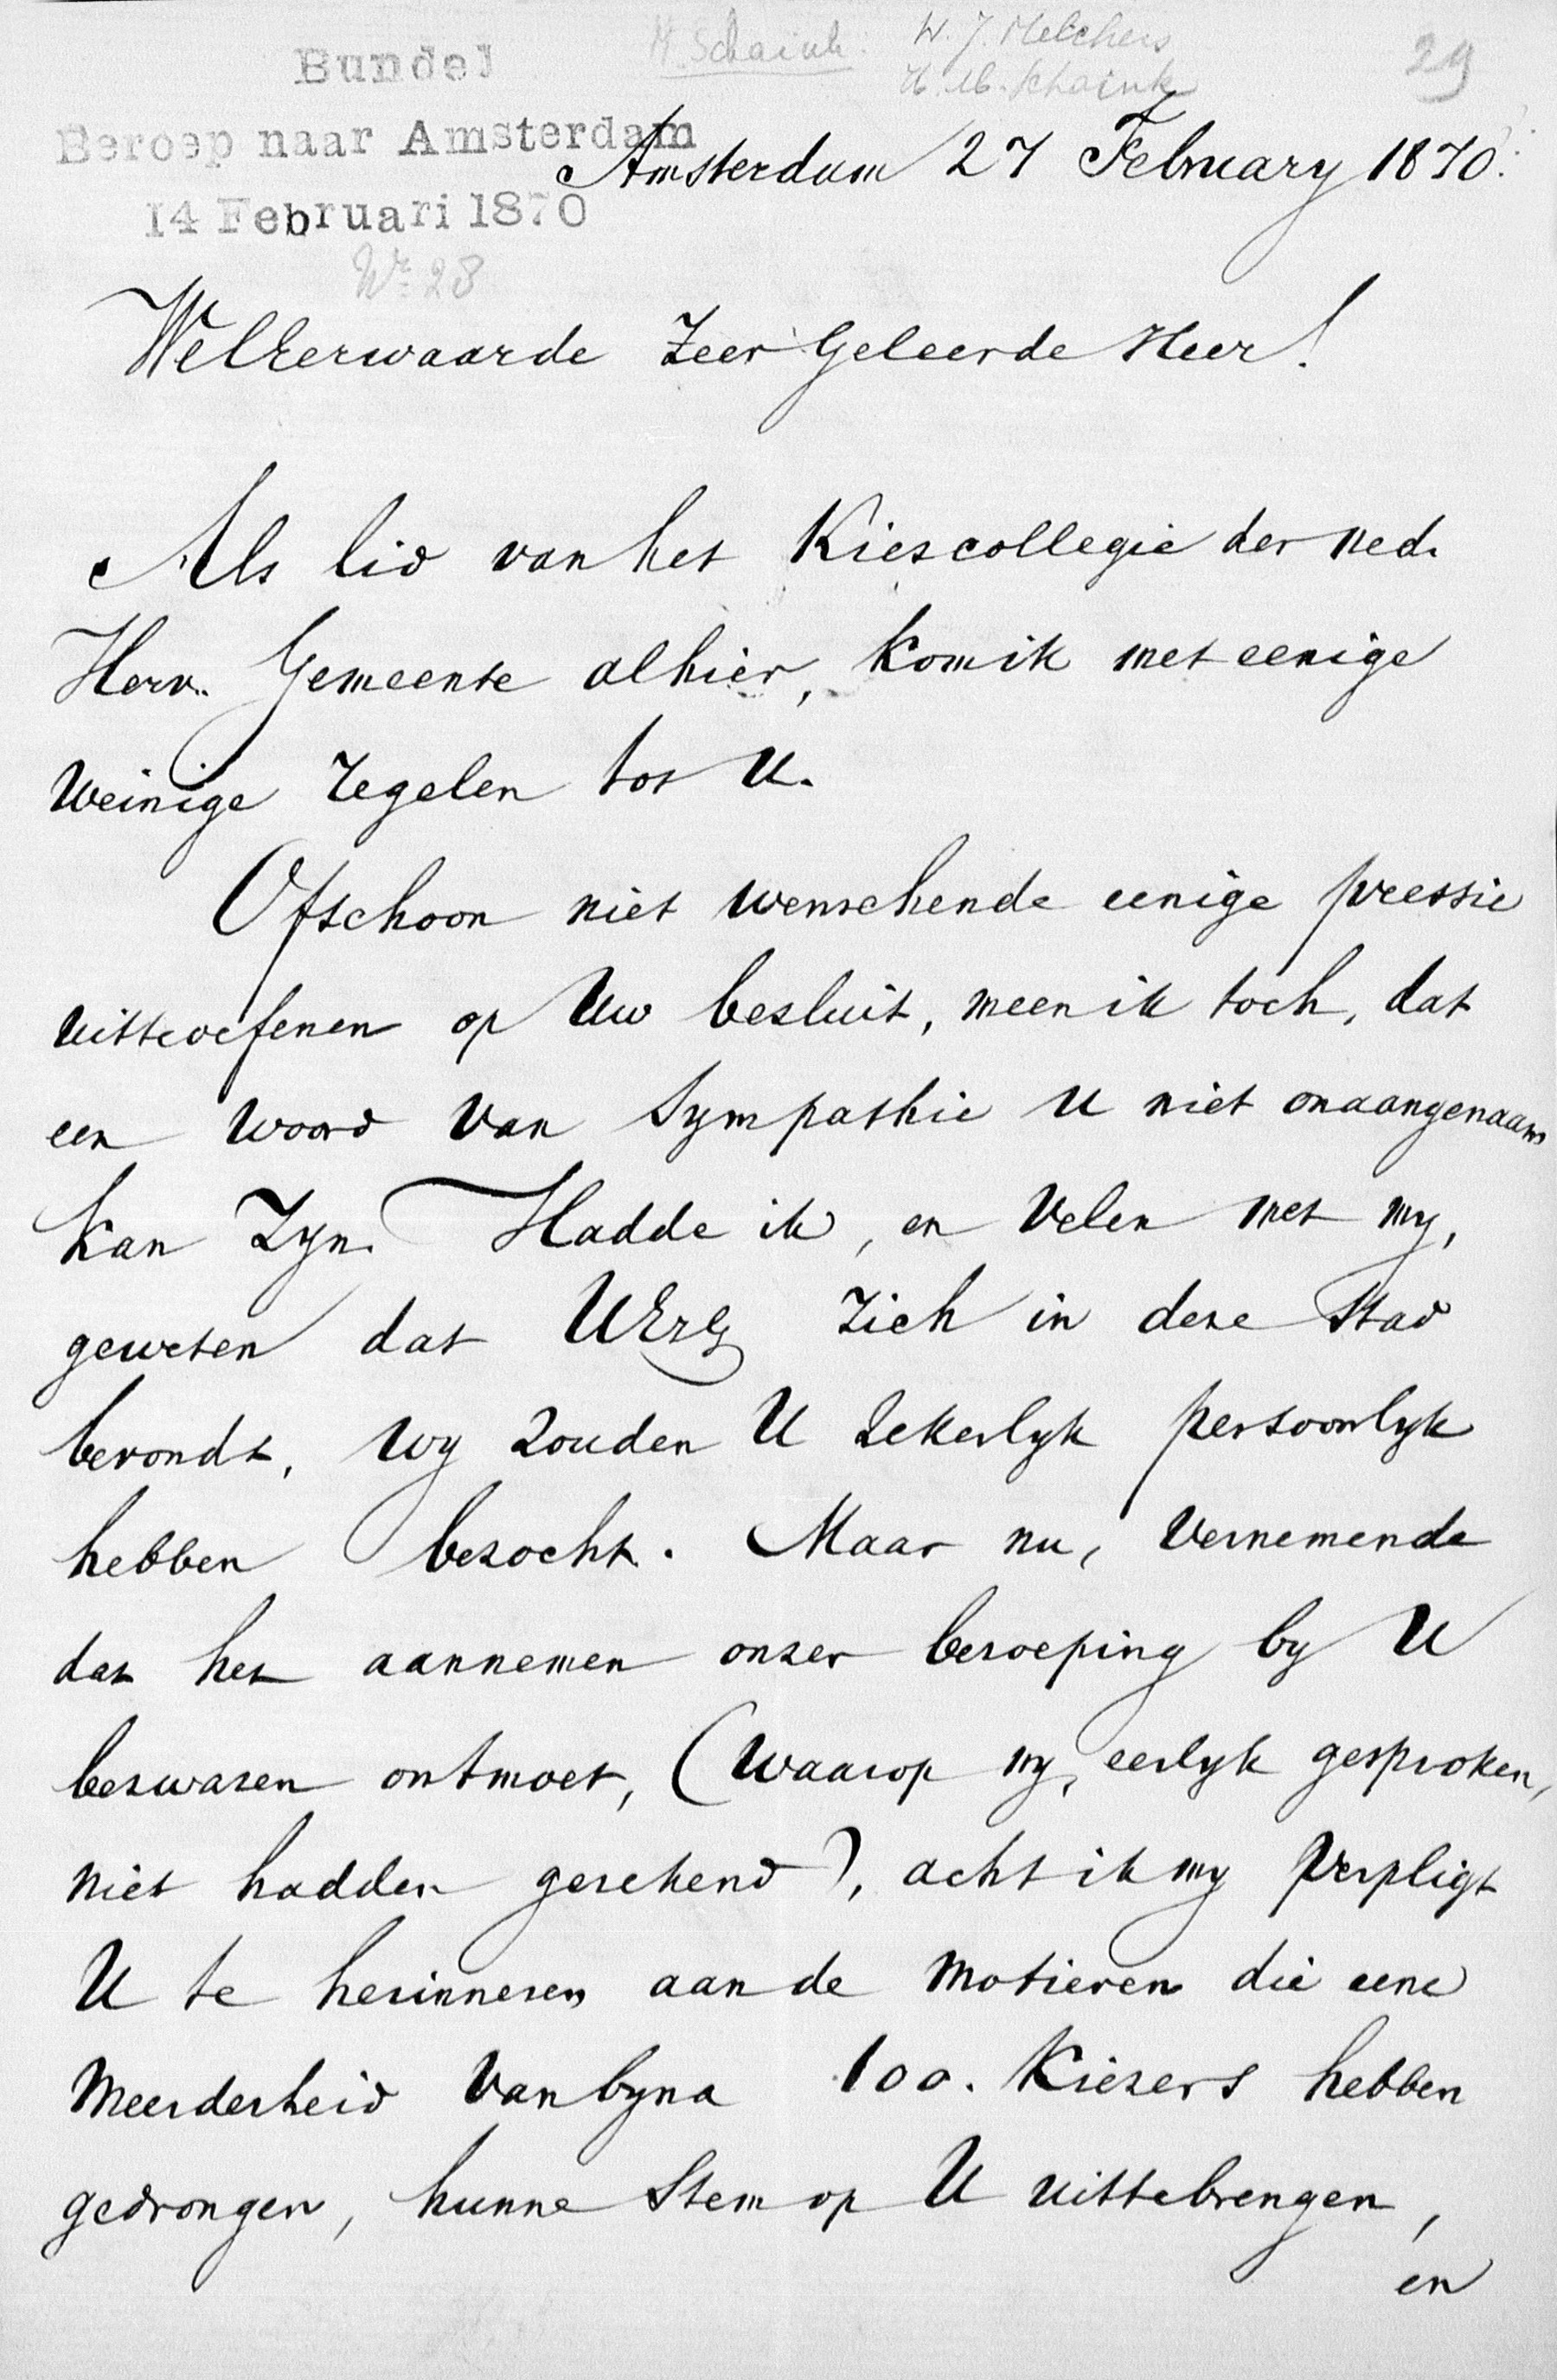 Bundel
M. Schaink. W. J. Melchers
H. M. Schaink
29
Beroep naar Amsterdam
Amsterdam 27 February 1870.
14 Februari 1870
Nr 28
WelEerwaarde Zeer Geleerde Heer!
Als lid van het Kiescollegie der Ned.
Herv. Gemeente alhier, kom ik met eenige
weinige regelen tot U.
Ofschoon niet wenschende eenige pressie
uitteoefenen op Uw besluit, meen ik toch, dat
een woord van sympathie U niet onaangenaam
kan zyn. Hadde ik, en velen met my,
geweten dat UErG zich in deze Stad
bevondt, wy zouden U zekerlyk persoonlyk
hebben bezocht. Maar nu, vernemende
dat het aannemen onzer beroeping by U
bezwaren ontmoet, (waarop wy, eerlyk gesproken,
niet hadden gerekend), acht ik my verpligt
U te herinneren aan de motieven die eene
meerderheid van byna 100. Kiezers hebben
gedrongen, hunne Stem op U uittebrengen,
en